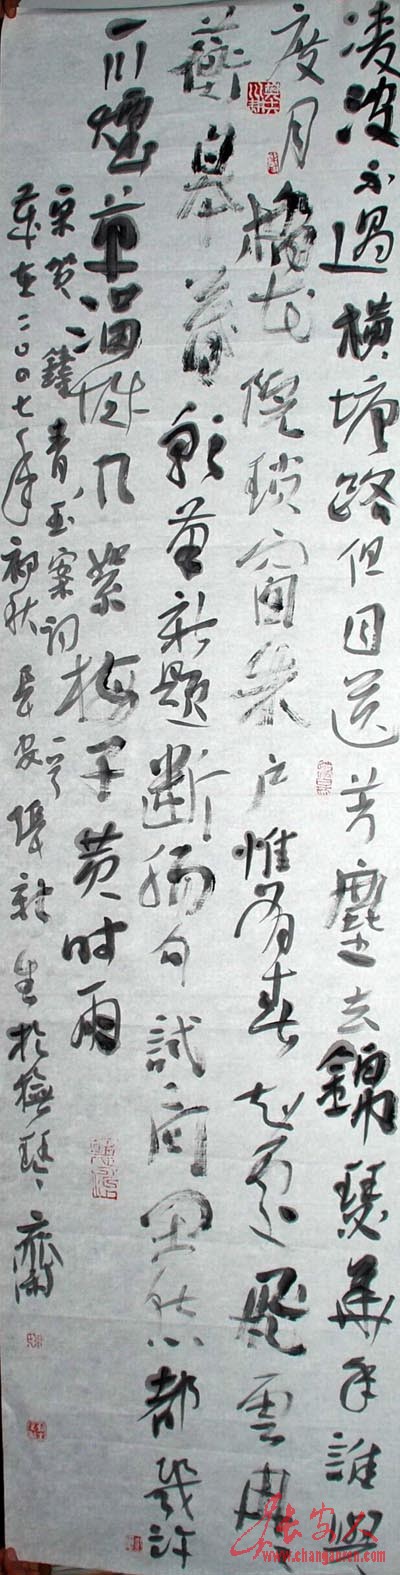 凌波不過橫塘路但目送芳塵去錦瑟華年誰與
度月橋花院瑣窗朱戶惟有春知處飛雲冉冉
蘅皋暮彩筆新題斷腸句試問閒愁都幾許
一川煙草滿城風絮梅子黃時雨
宋賀鑄青玉案詞
歲在二〇〇七年初秋長安 生於撫琴齋
长安人
www.changanren.com